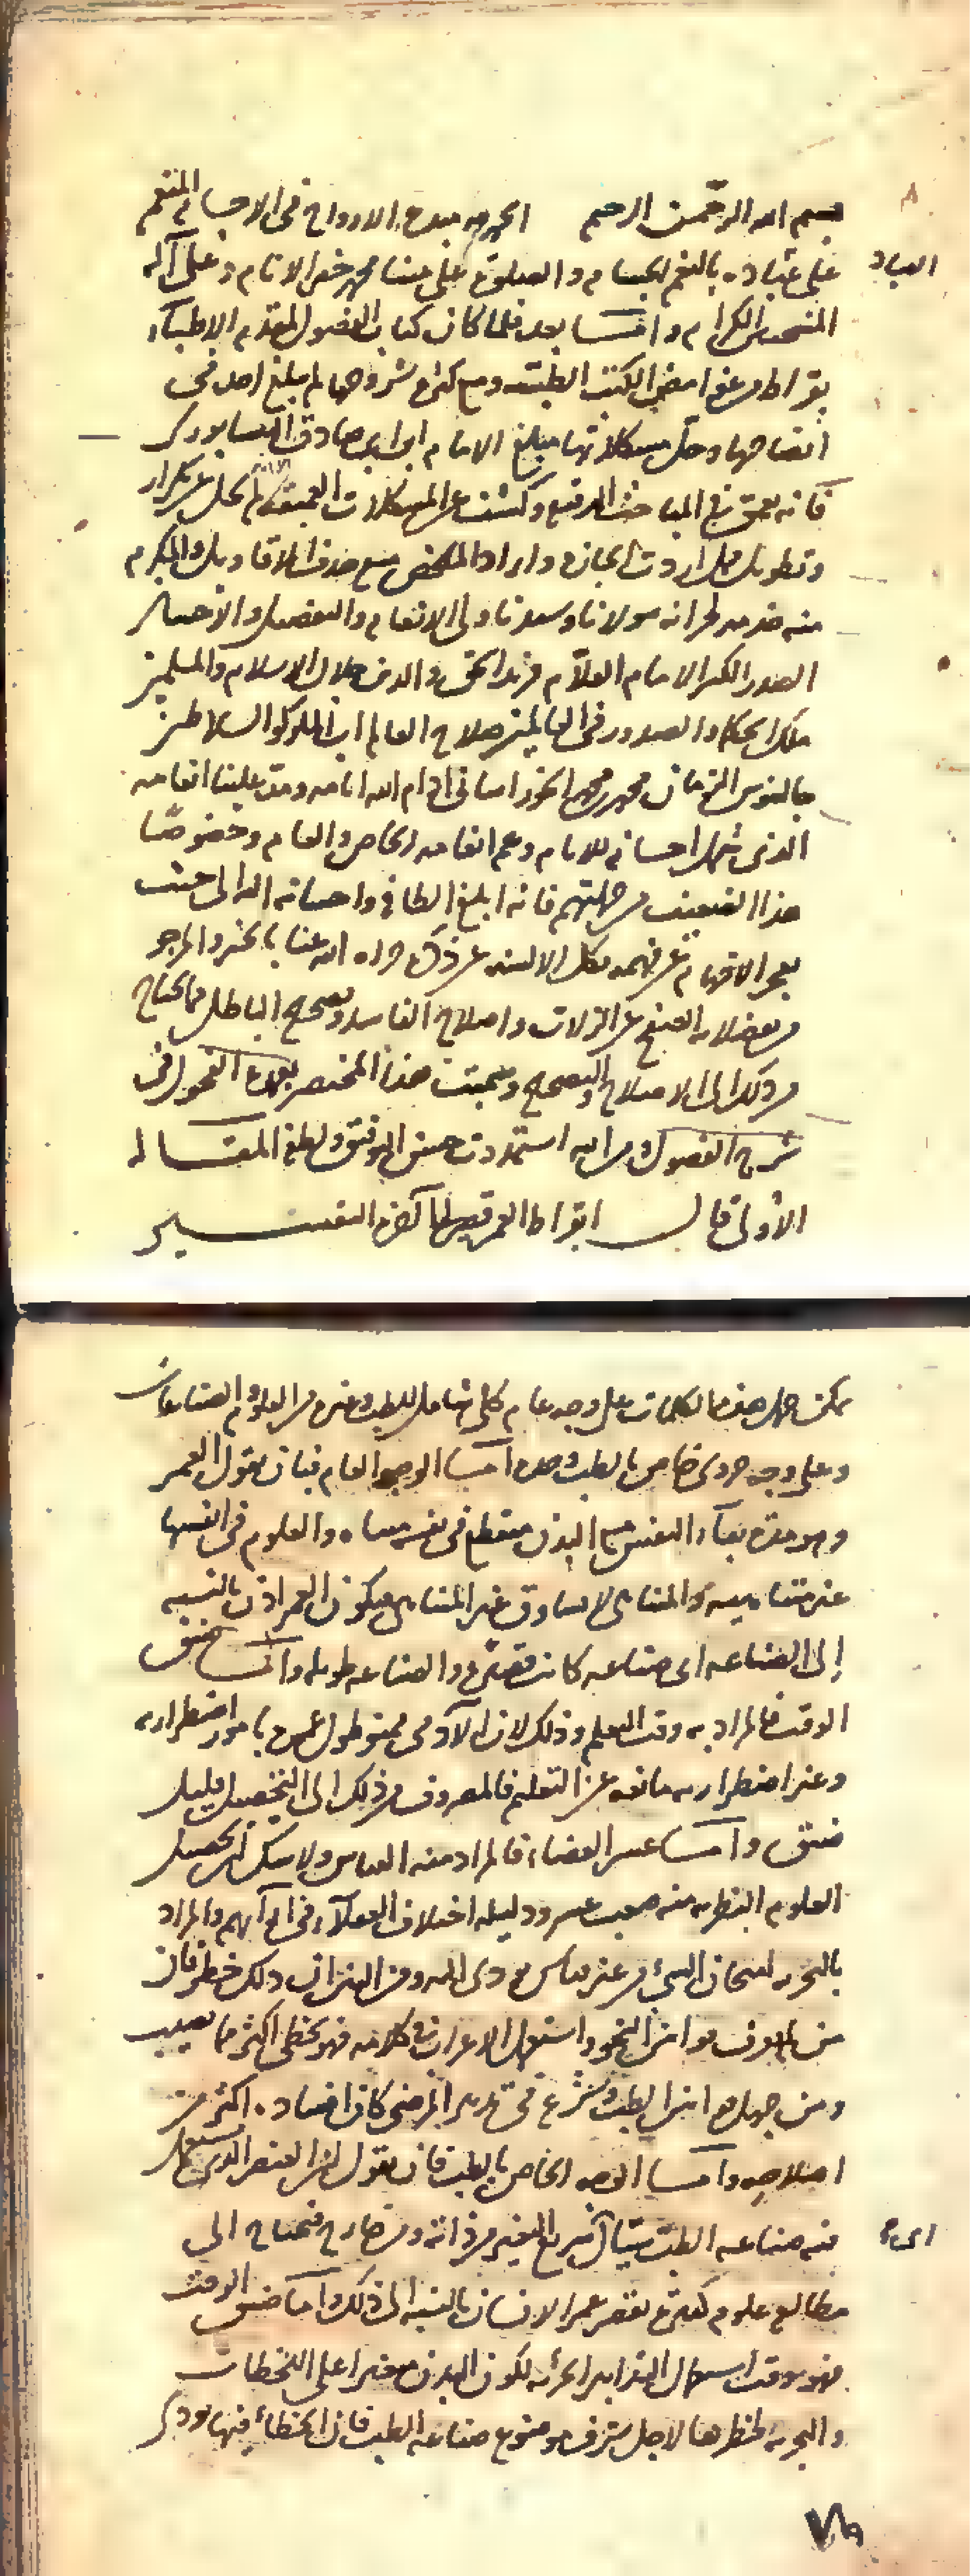 بسم الله الرحمن الرحيم الحمد لله مبدع الارواح فى الاجسام المنعم
على عباده بالنعم الجسام والصلوة على نبينا محمد خير الانام وعلى آله
العباد
المنتجبين الكرام واما بعد فلما كان كتاب الفصول لمقدم الاطباء
بقراط من غوامض الكتب الطبية ومع كثرة شروحها لم يبلغ احد فى
ايضاحها وحل مشكلاتها مبلغ الامام ابن ابى صادق النيسابورى
فانه تعمق فى المباحث الدقيقة وكشف عن المشكلات العميقة الا انه لم يخل عن تكرار
وتطويل اردت ايجازه وايراد الملخص مع حذف الاقاويل والمكرر
منه خدمة لخزانة مولانا وسيدنا ولى الانعام والتفضيل والاحسان
الصدر الكبير الامام العلام فريد الحق والدين جلال الاسلام والمسلمين
ملك الحكماء والصدور فى العالمين صلاح العالم ابن الملوك والسلاطين
جالينوس الزمان محمد بن محمد الخوراسانى ادام الله ايامه ومد علينا انعامه
الذى شمل احسانه للانام وعم انعامه الخاص والعام وخصوصًا
هذا الضعيف من جملتهم فانه ابلغ الطافه واحسانه اليه الى حيث
يعجز الافهام عن فهمه وتكل الالسنة عن ذكره جزاه الله عنا بالخير والمرجو
من فضلائه الصفح عن الزلات واصلاح الفاسد وتصحيح الباطل مما يحتاج
من ذلك الى الاصلاح والتصحيح وسميت هذا المختصر بعمدة الفحول فى
شرح الفصول ومن الله استمددت حسن التوفيق ولطفه المقالة
الأولى قال ابقراط العمر قصير الى آخره التفسير
يمكن حمل هذه الكلمات على وجه عام كلى شامل للطب وغيره من العلوم والصناعات
وعلى وجه جزوى خاص بالطب وحده اما الوجه العام فبان نقول العمر
وهو مدة بقاء النفس مع البدن منقطع فى نفسه متناه والعلوم فى انفسها
غير متناهية والمتناهى لا يساوق غير المتناهى فيكون العمر اذن بالنسبة
إلى الصناعة اى صناعة كانت قصيرا والصناعة طويلة واما ضيق
الوقت فالمراد به وقت التعلم وذلك لان الآدمى ممنو طول عمره بامور اضطرارية
وغير اضطرارية مانعة عن التعليم فالمصروف من ذلك الى التحصيل قليل
ضيق واما عسر القضاء فالمراد منه القياس ولا شك ان تحصيل
العلوم النظرية منه صعب عسر ودليله اختلاف العقلاء فى آرائهم والمراد
بالتجربة امتحان الشىء من غير قياس مودى اليه ومن البين ان ذلك خطر فان
من لم يعرف قوانين النحو واستعمل الاعراب فى كلامه فهو يخطى اكثر مما يصيب
ومن جهل قوانين الطب وشرع فى تدبير المرضى كان افساده اكثر من
اصلاحه واما الوجه الخاص بالطب فان نقول ان العنصر الذى يستعمل
فيه صناعة الطب سيال سريع التغير من ذاته ومن خارج فيحتاج الى
اى
مطالع علوم كثيرة يقصر عمر الانسان بالنسبة الى ذلك واما ضيق الوقت
فهو وقت استعمال التدابير الجزئية لكون البدن متغيرا على اللحظات
والتجربة لخطرها لاجل شرف موضوع صناعة الطب فان الخطاء فيها يودى